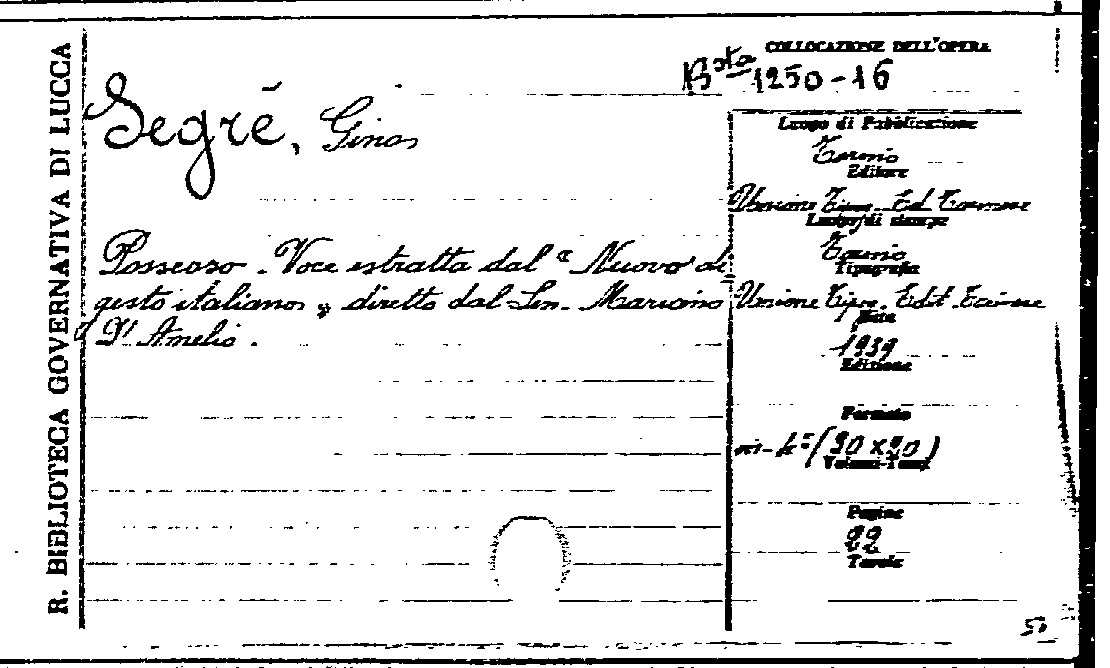 R. BIBLIOTECA GOVERNATIVA DI LUCCA
COLLOCAZIONE DELL'OPERA
Bsta 1250-16
Segré, Gino
Possesso. Voce estratta dal "Nuovo di
gesto italiano" diretto dal Sen. Mariano
D'Amelio.
Luogo di Pubblicazione
Torino
Editore
Unione Tipo. Ed. Torinese
Luogo di stampa
Torino
Tipografia
Unione Tipo. Edit. Torinese
Data
1939
Edizione
Formato
in-4º (30 x 20)
Volumi-Tomi
Pagine
22
Tavole